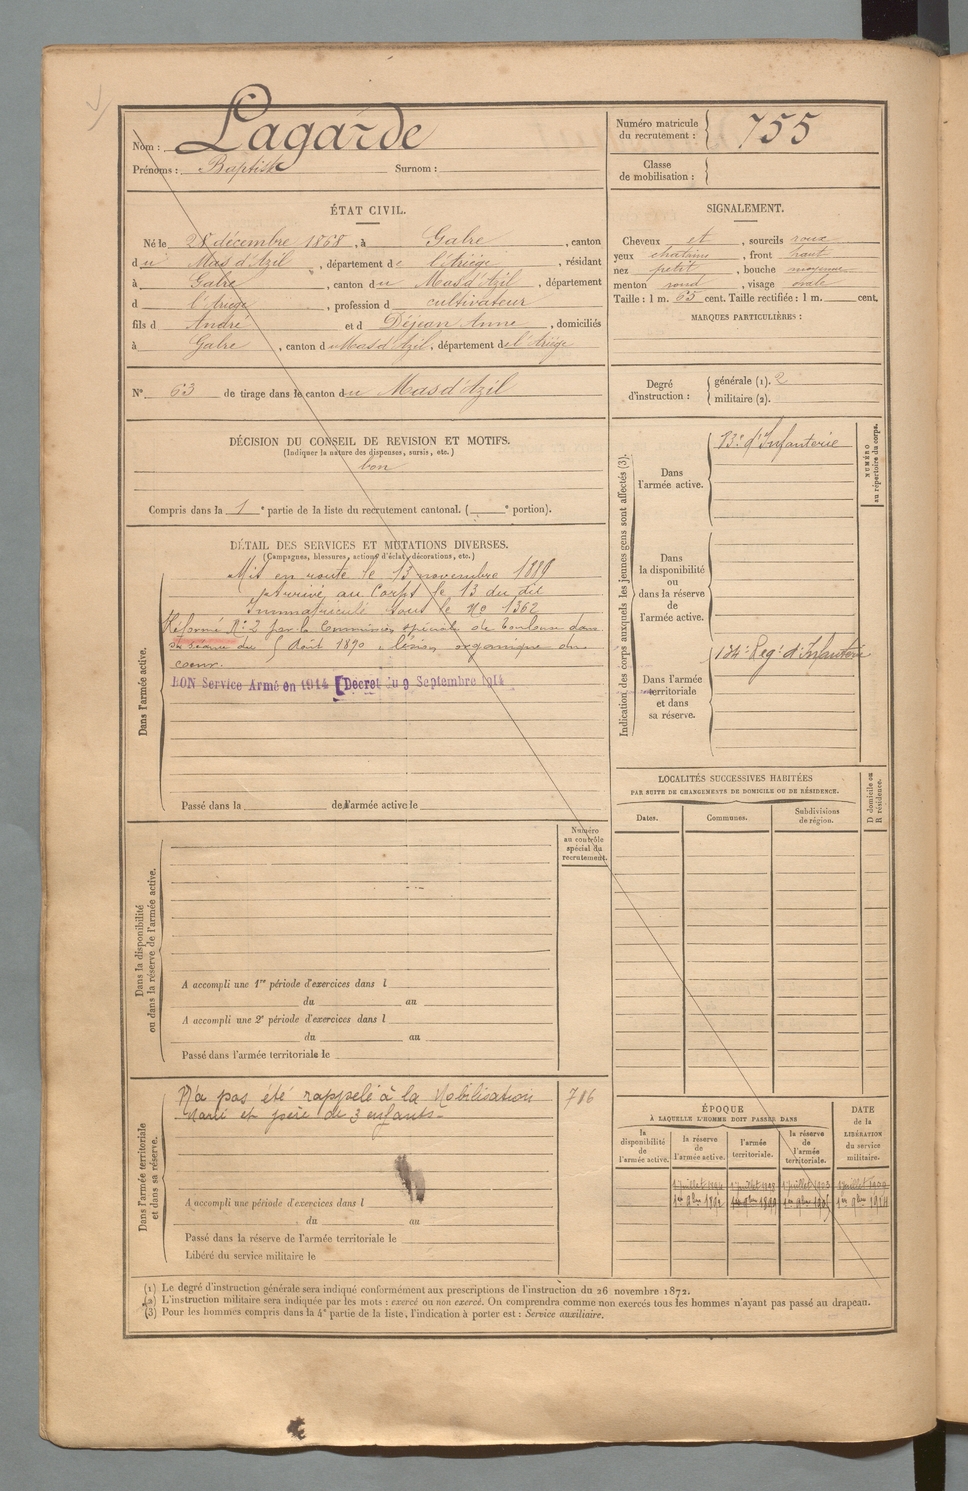 Nom : Lagarde
Prénoms : Baptiste Surnom :
Numéro matricule du recrutement : 755
Classe de mobilisation :
ÉTAT CIVIL.
Né le 28 décembre 1868, à Gabre, canton
du Mas d'Azil, département de l'Ariège, résidant
à Gabre, canton du Mas d'Azil, département
d l'Ariège, profession d cultivateur
fils d André et d Déjean Anne, domiciliés
à Gabre, canton du Mas d'Azil, département de l'Ariège
SIGNALEMENT.
Cheveux et, sourcils roux
yeux chatains, front haut
nez petit, bouche moyenne
menton rond, visage ovale
Taille : 1 m. 65 cent. Taille rectifiée : 1 m. cent.
MARQUES PARTICULIÈRES :
N° 63 de tirage dans le canton du Mas d'Azil
Degré d'instruction : générale (1). 2
militaire (2).
DÉCISION DU CONSEIL DE REVISION ET MOTIFS.
(Indiquer la nature des dispenses, sursis, etc.)
bon
Compris dans la 1e partie de la liste du recrutement cantonal. ( e portion).
DÉTAIL DES SERVICES ET MUTATIONS DIVERSES.
(Campagnes, blessures, actions d'éclat, décorations, etc.)
Dans l'armée active.
Mis en route le 13 novembre 1889
Arrivé au Corps le 13 du dit
Immatriculé sous le No 1362
Réformé No 2 par la Commission spéciale de Toulouse dans
sa séance du 5 Août 1890 "lésion organique du
coeur.
BON Service Armé en 1914 [Décret du 9 Septembre 1914
Passé dans la de l'armée active le
Indication des corps auxquels les jeunes gens sont affectés (3).
NUMÉRO au répertoire du corps.
Dans l'armée active.
d'Infanterie
Dans la disponibilité ou dans la réserve de l'armée active.
Dans l'armée territoriale et dans sa réserve.
134e Regt d'Infanterie
LOCALITÉS SUCCESSIVES HABITÉES
PAR SUITE DE CHANGEMENTS DE DOMICILE OU DE RÉSIDENCE.
D domicile ou R résidence.
Dates. Communes. Subdivisions de région.
Dans la disponibilité ou dans la réserve de l'armée active.
Numéro au contrôle spécial du recrutement.
A accompli une 1re période d'exercices dans l
du au
A accompli une 2e période d'exercices dans l
du au
Passé dans l'armée territoriale le
Dans l'armée territoriale et dans sa réserve.
N'a pas été rappelé à la Mobilisation 786
Marié et père de 3 enfants-
A accompli une période d'exercices dans l
du au
Passé dans la réserve de l'armée territoriale le
Libéré du service militaire le
ÉPOQUE
À LAQUELLE L'HOMME DOIT PASSER DANS
DATE de la LIBÉRATION du service militaire.
la disponibilité de l'armée active.
la réserve de l'armée active.
l'armée territoriale.
la réserve de l'armée territoriale.
(1) Le degré d'instruction générale sera indiqué conformément aux prescriptions de l'instruction du 26 novembre 1872.
(2) L'instruction militaire sera indiquée par les mots : exercé ou non exercé. On comprendra comme non exercés tous les hommes n'ayant pas passé au drapeau.
(3) Pour les hommes compris dans la 4e partie de la liste, l'indication à porter est : Service auxiliaire.